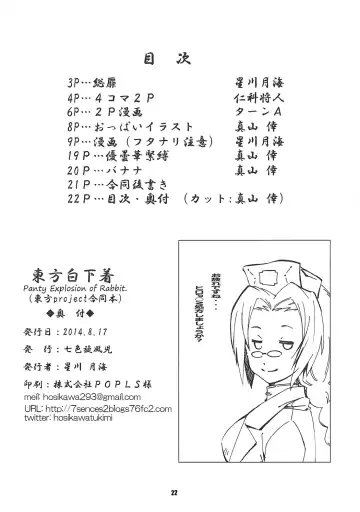 目 次
3P…総扉 星川月海
4P…4コマ2P 仁科将人
6P…2P漫画 ターンA
8P…おっぱいイラスト 真山 倖
9P…漫画(フタナリ注意) 星川月海
19P…優曇華緊縛 真山 倖
20P…バナナ 真山 倖
21P…合同後書き
22P…目次・奥付 (カット:真山 倖)
東方白下着
Panty Explosion of Rabbit.
(東方project合同本)
◆奥 付◆
発行日:2014.8.17
発 行:七色旋風児
発行者:星川 月海
印刷:株式会社POPLS様
meil: hosikawa293@gmail.com
URL: http://7sences2blogs76fc2.com
twitter: hosikawatukimi
22